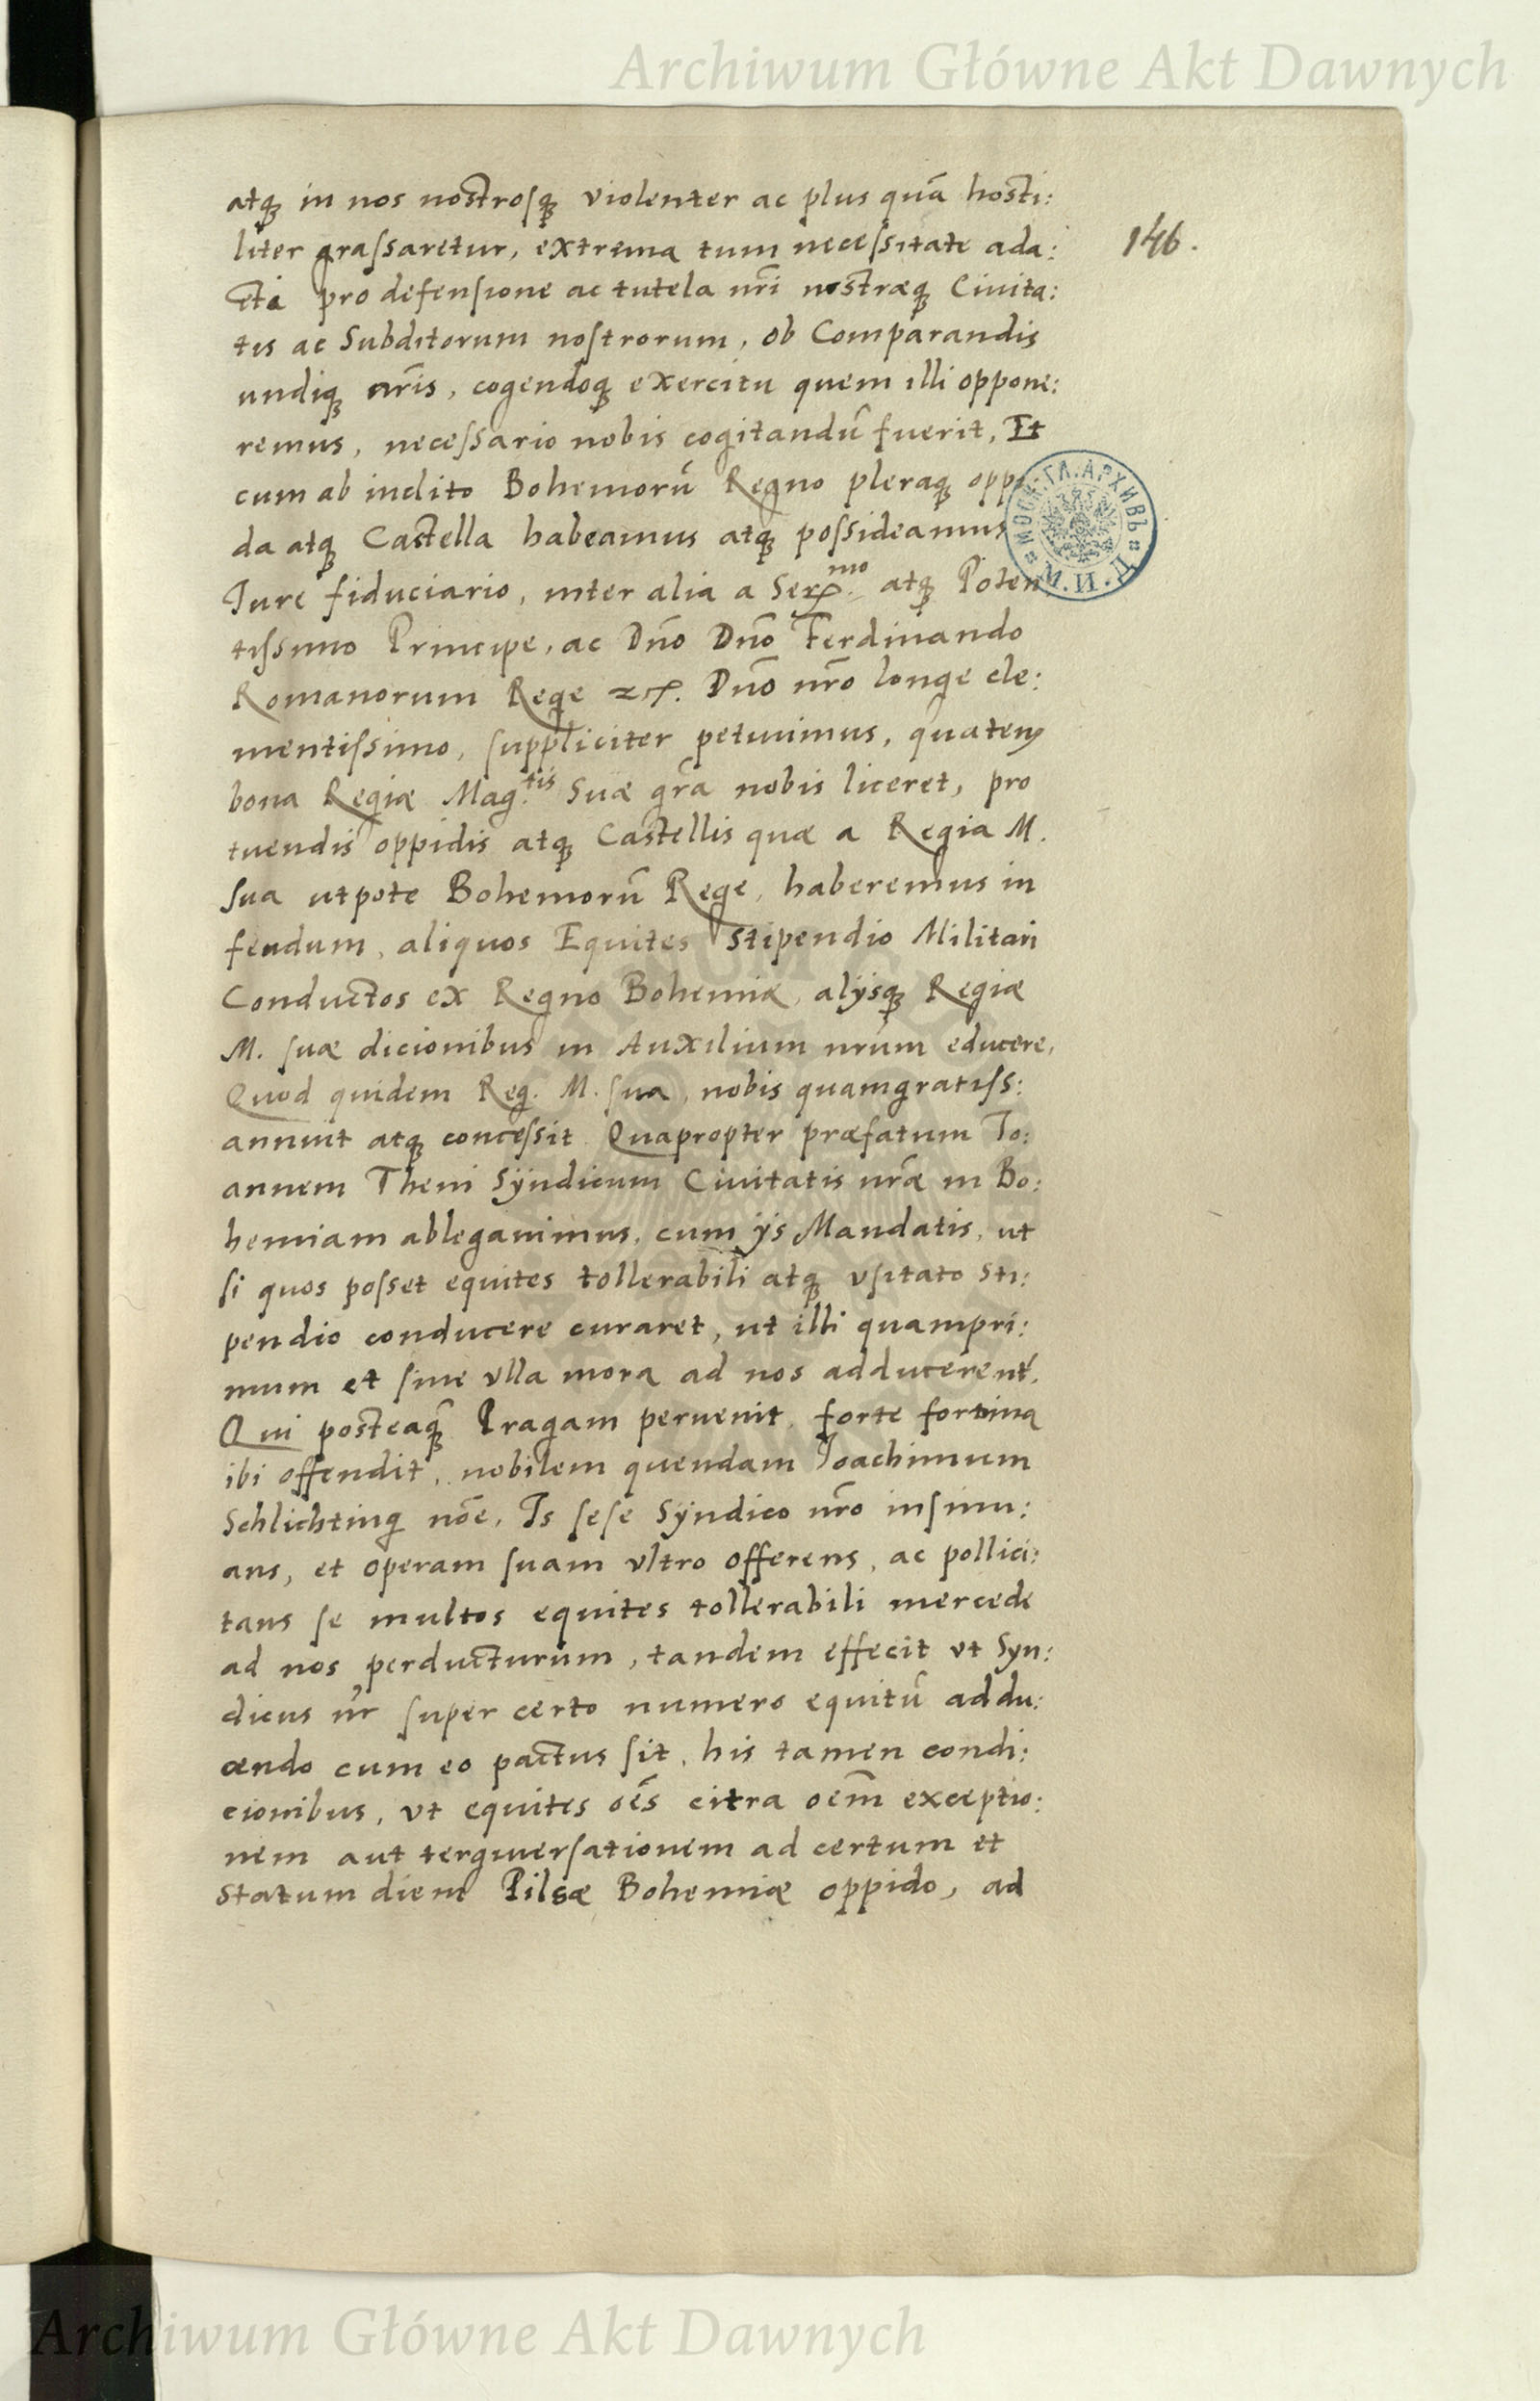 Archiwum Główne Akt Dawnych
146.
atq́ in nos nostrosq́ violenter ac plus quā hosti:
liter grassaretur, extrema tum necessitate ada:
cta pro defensione ac tutela nr̄i nostræq́ Ciuita:
tis ac Subditorum nostrorum, ob Comparandis
undiq́ ar̄is, cogendoq́ exercitu quem illi oppone:
remus, necessario nobis cogitandū fuerit, Et
cum ab inclito Bohemorū Regno pleraq́ opp
da atq́ Castella habeamus atq́ possideamus
Jure fiduciario, inter alia a Ser.mo atq́ Poten
tissimo Principe, ac Dn̄o Dn̄o Ferdinando
Romanorum Rege Dn̄o nr̄o longe cle:
mentissimo, suppliciter petiuimus, quatenꝰ
bona Regiæ Mag.tis Suæ gr̄a nobis liceret, pro
tuendis oppidis atq́ Castellis quæ a Regia M.
sua utpote Bohemorū Rege, haberemus in
feudum, aliquos Equites stipendio Militari
Conductos ex Regno Bohemiæ, alijsq́ Regiæ
M. suæ dicionibus in Auxilium nrūm educere,
Quod quidem Reg. M. sua, nobis quamgratiss:
annuit atq́ concessit Quapropter præfatum Jo:
annem Theni Sÿndicum Ciuitatis nrǣ in Bo:
hemiam ablegauimus, cum ijs Mandatis, ut
si quos posset equites tollerabili atq́ vsitato sti:
pendio conducere curaret, ut illi quampri:
mum et sine vlla mora ad nos adducerent́.
Qui posteaq̄́ Pragam peruenit, forte fortuna
ibi offendit, nobilem quendam Joachimum
Schlichting nōe, Is sese Sÿndico nr̄o insinu:
ans, et operam suam vltro offerens, ac pollici:
tans se multos equites tollerabili mercede
ad nos perducturum, tandem effecit vt Syn:
dicus nr̄ super certo numero equitū addu:
cendo cum eo pactus sit, his tamen condi:
cionibus, vt equites oēs citra oem̄ exceptio:
nem aut tergiuersationem ad certum et
statum diem Pilsæ Bohemiæ oppido, ad
МОСК. ГЛ. АРХИВЪ М. И. Д.
Archiwum Główne Akt Dawnych